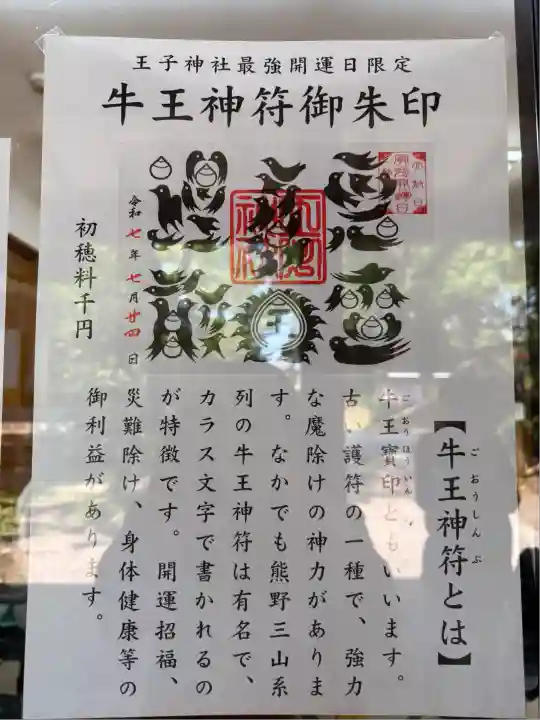 王子神社最強開運日限定
牛王神符御朱印
令和七年七月廿四日
初穂料千円
【牛王神符とは】
ごおうしんぷ
牛王寶印ともいいます。
ごおうほういん
古い護符の一種で、強力
な魔除けの神力がありま
す。なかでも熊野三山系
列の牛王神符は有名で、
カラス文字で書かれるの
が特徴です。開運招福、
災難除け、身体健康等の
御利益があります。